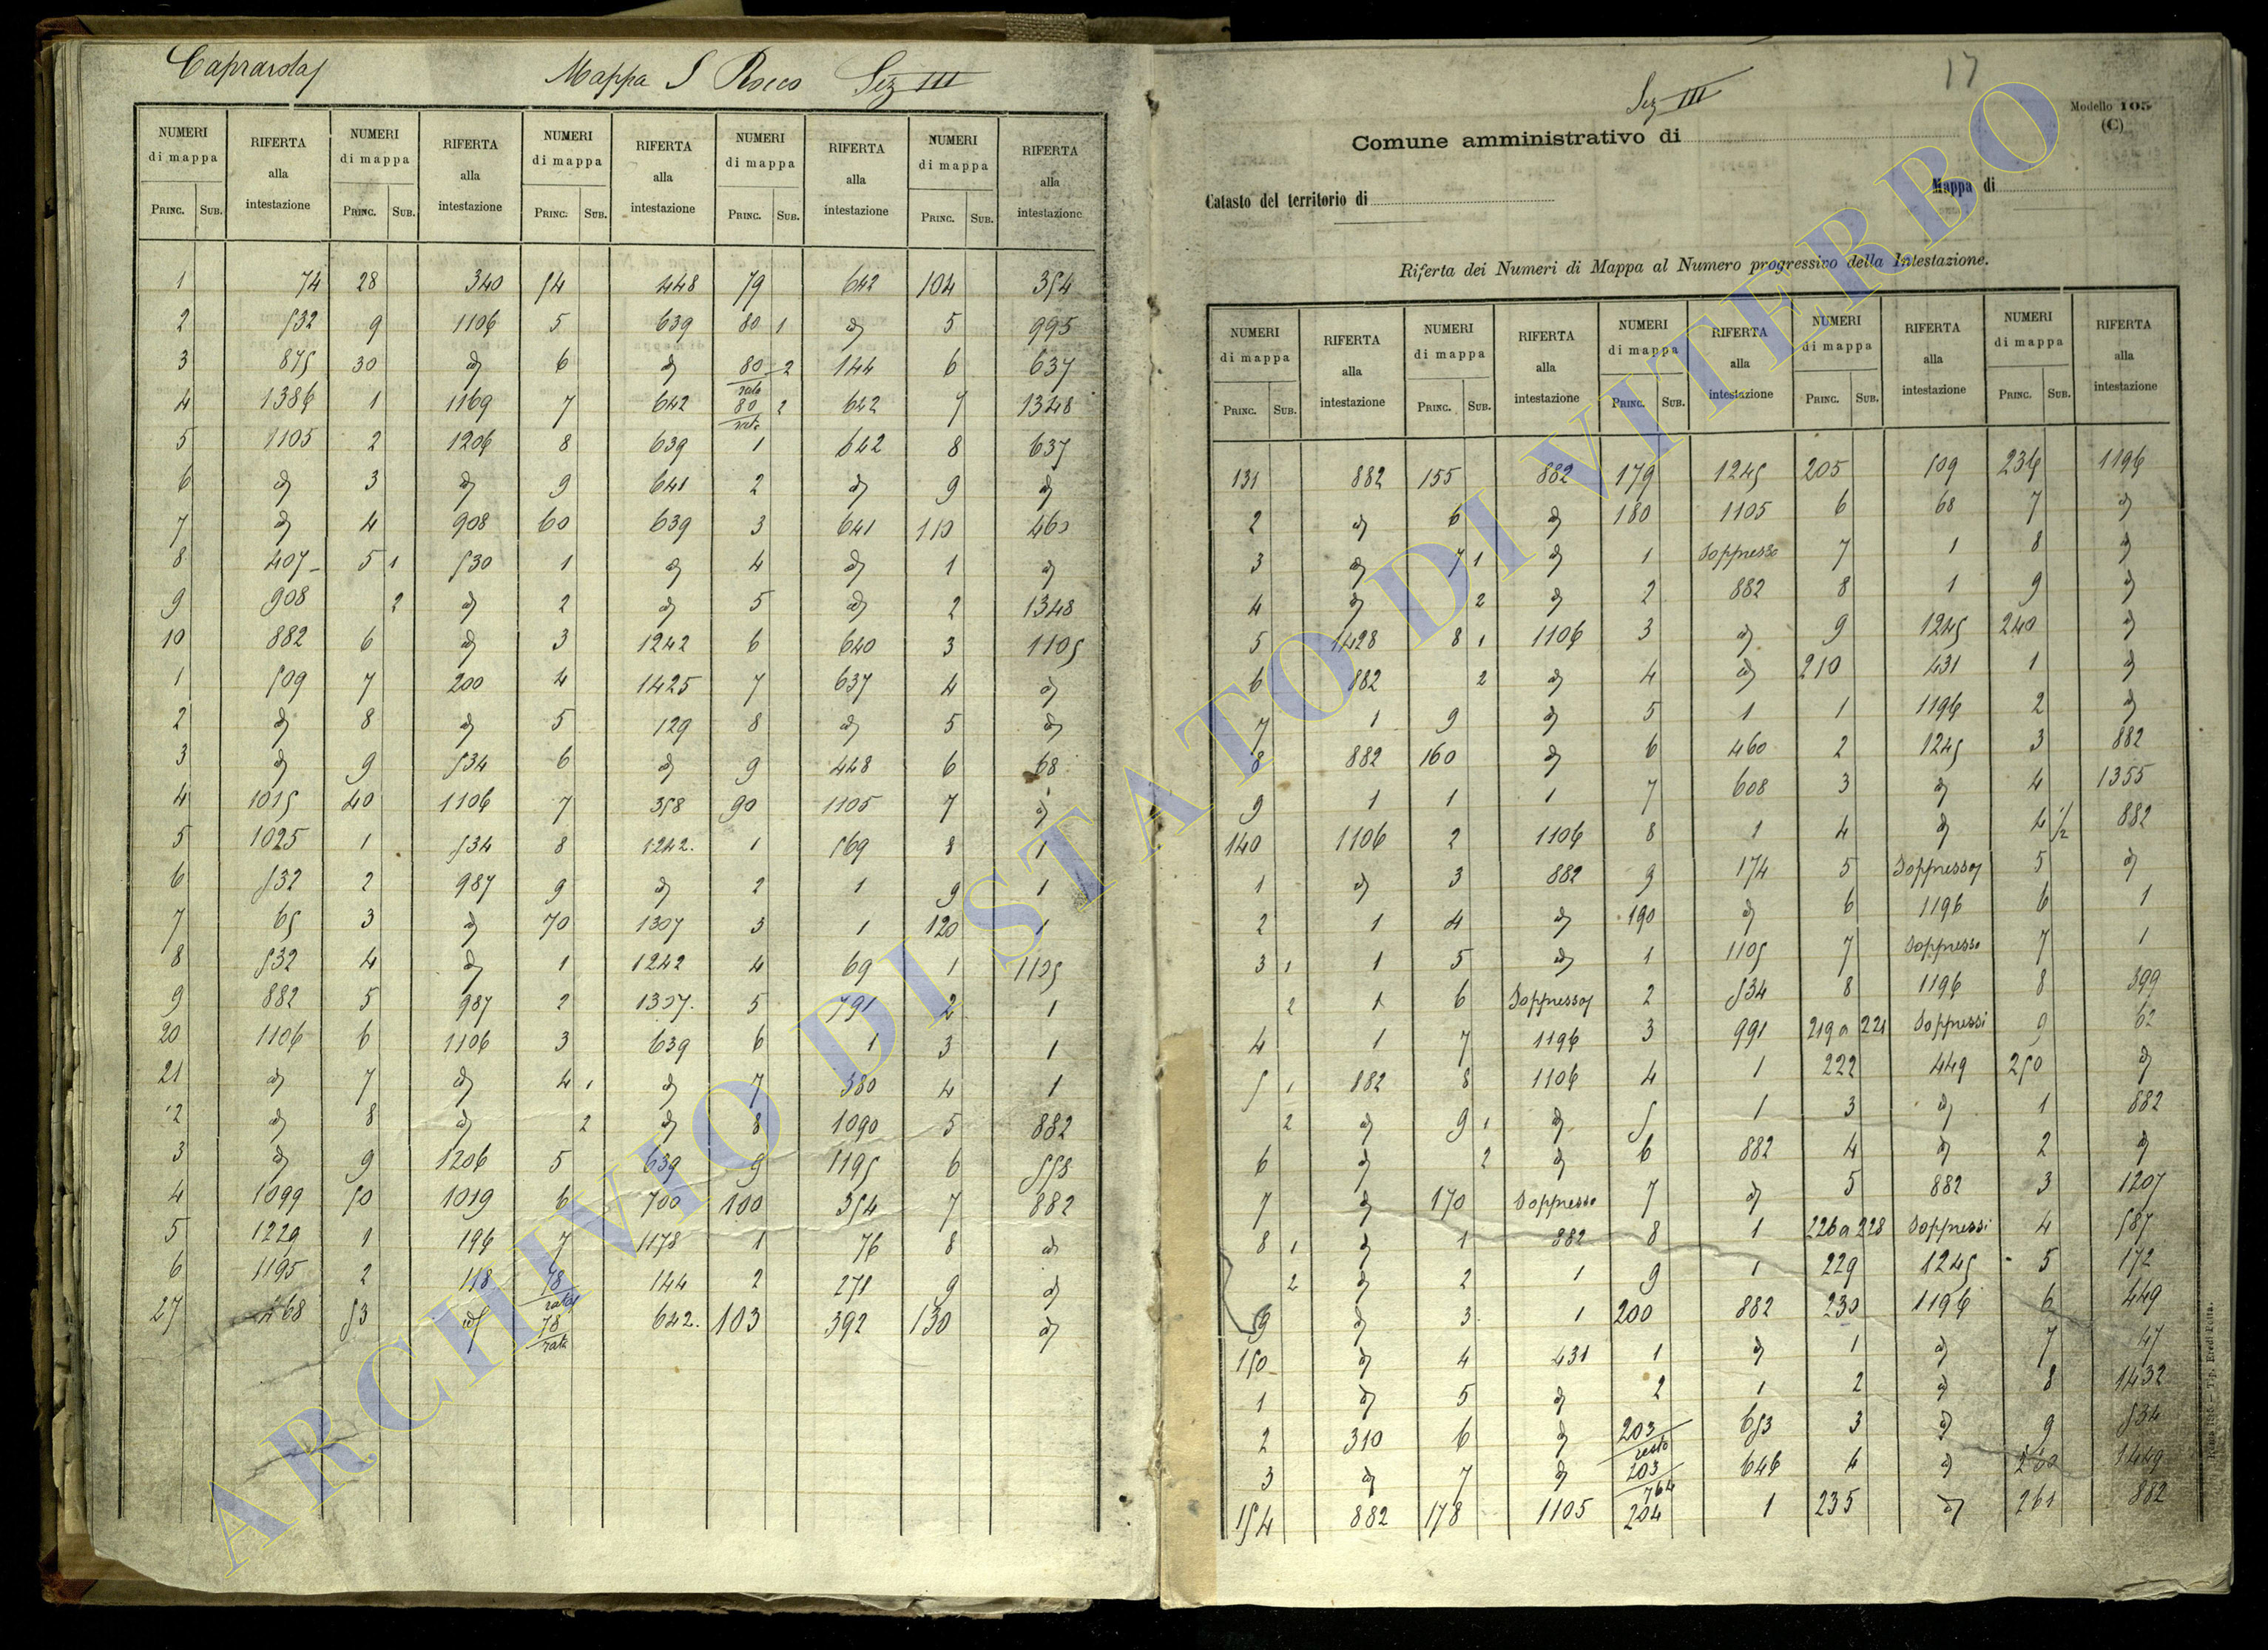 Caprarola Mappa S Rocco Sez III
NUMERI di mappa RIFERTA alla intestazione NUMERI di mappa RIFERTA alla intestazione NUMERI di mappa RIFERTA alla intestazione NUMERI di mappa RIFERTA alla intestazione NUMERI di mappa RIFERTA alla intestazione
PRINC. SUB. PRINC. SUB. PRINC. SUB. PRINC. SUB. PRINC. SUB.
1 74 28 340 54 448 79 642 104 354
2 532 9 1106 5 639 80 1 d 5 995
3 875 30 d 6 d 80 rata 2 144 6 637
4 1386 1 1169 7 642 80 rata 2 642 7 1348
5 1105 2 1206 8 639 1 642 8 637
6 d 3 d 9 641 2 d 9 d
7 d 4 908 60 639 3 641 110 460
8 407 5 1 530 1 d 4 d 1 d
9 908 2 d 2 d 5 d 2 1348
10 882 6 d 3 1242 6 640 3 1105
1 509 7 200 4 1425 7 637 4 d
2 d 8 d 5 129 8 d 5 d
3 d 9 534 6 d 9 448 6 68
4 1015 40 1106 7 358 90 1105 7 d
5 1025 1 534 8 1242. 1 569 8 1
6 532 2 987 9 d 2 1 9 1
7 65 3 d 70 1307 3 1 120 1
8 532 4 d 1 1242 4 69 1 1105
9 882 5 987 2 1307. 5 791 2 1
20 1106 6 1106 3 639 6 1 3 1
21 d 7 d 4 1 d 7 380 4 1
2 d 8 d 2 d 8 1090 5 882
3 d 9 1206 5 639 9 1195 6 558
4 1099 50 1019 6 700 100 354 7 882
5 1229 1 196 7 1178 1 76 8 d
6 1195 2 118 78 rata 144 2 271 9 d
27 268 53 d 78 rata 642. 103 392 130 d
17
Sez III
Modello 105
(C)
Comune amministrativo di
Catasto del territorio di Mappa di
Riferta dei Numeri di Mappa al Numero progressivo della Intestazione.
NUMERI di mappa RIFERTA alla intestazione NUMERI di mappa RIFERTA alla intestazione NUMERI di mappa RIFERTA alla intestazione NUMERI di mappa RIFERTA alla intestazione NUMERI di mappa RIFERTA alla intestazione
PRINC. SUB. PRINC. SUB. PRINC. SUB. PRINC. SUB. PRINC. SUB.
131 882 155 882 179 1245 205 509 236 1196
2 d 6 d 180 1105 6 68 7 d
3 d 7 1 d 1 Soppresso 7 1 8 d
4 d 2 d 2 882 8 1 9 d
5 1428 8 1 1106 3 d 9 1245 240 d
6 882 2 d 4 d 210 431 1 d
7 1 9 d 5 1 1 1196 2 d
8 882 160 d 6 460 2 1245 3 882
9 1 1 1 7 608 3 d 4 1355
140 1106 2 1106 8 1 4 d 4 1/2 882
1 d 3 882 9 174 5 Soppresso 5 d
2 1 4 d 190 d 6 1196 6 1
3 1 1 5 d 1 1105 7 Soppresso 7 1
2 1 6 Soppresso 2 534 8 1196 8 399
4 1 7 1196 3 991 219 a 221 Soppressi 9 62
5 1 882 8 1106 4 1 222 449 250 d
2 d 9 1 d 5 1 3 d 1 882
6 d 2 d 6 882 4 d 2 d
7 d 170 Soppresso 7 d 5 882 3 1207
8 1 d 1 882 8 1 226 a 228 Soppressi 4 587
2 d 2 1 9 1 229 1245 5 172
9 d 3 1 200 882 230 1196 6 449
150 d 4 431 1 d 1 d 7 47
1 d 5 d 2 1 2 d 8 1432
2 310 6 d 203 resto 653 3 d 9 534
3 d 7 d 203 764 646 4 d 260 1449
154 882 178 1105 204 1 235 d 261 882
ARCHIVIO DI STATO DI VITERBO